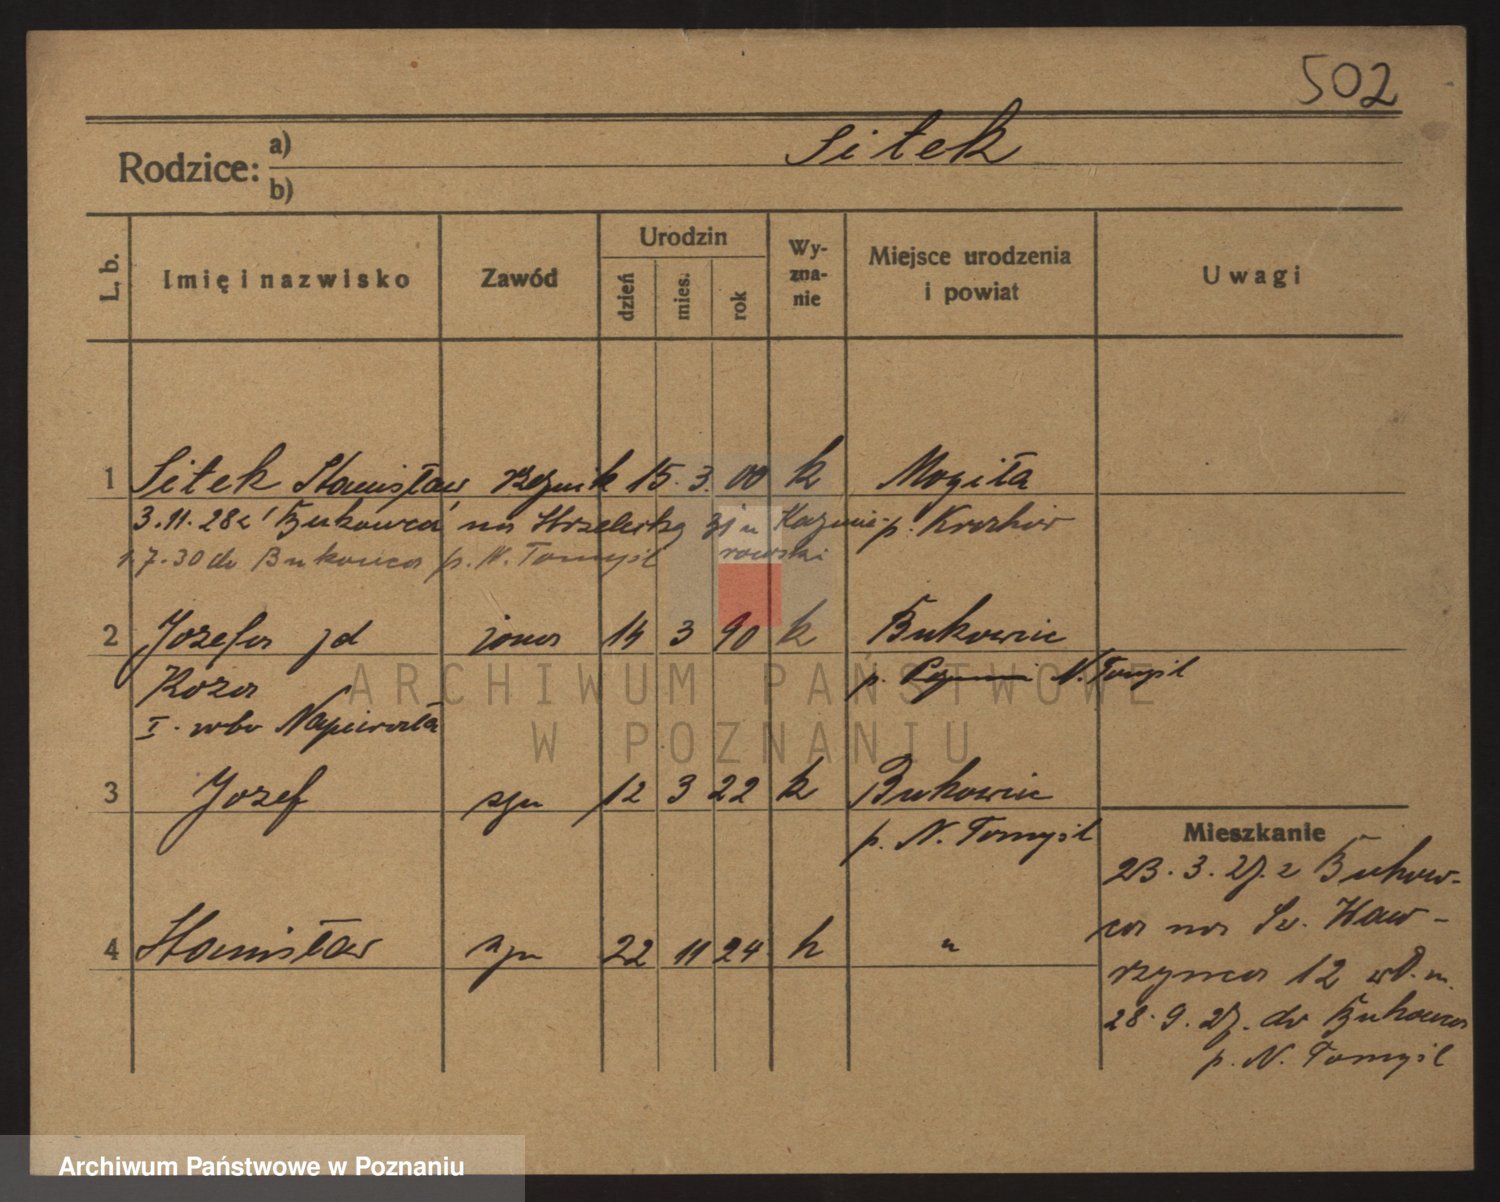 502
Rodzice: a) Sitek
b)
L. b.
Imię i nazwisko
Zawód
Urodzin
dzień
mies.
rok
Wy-
zna-
nie
Miejsce urodzenia
i powiat
Uwagi
1 Sitek Stanisław rzeźnik 15. 3. 00 k Mogiła
3.11.28 z Bukowca na Strzelecką u Kazimie- p. Kraków
1.7.30 do Bukowca p. N. Tomyśl rowski
2 Józefa jd żona 14 3 90 k Bukowiec
Koza p. N. Tomyśl
I. wdo Napierała
3 Józef syn 12 3 22 k Bukowiec
p. N. Tomyśl
4 Stanisław syn 22 11 24 k "
Mieszkanie
23. 3. 27. z Bukow-
ca na Św. Waw-
rzyńca 12 wł. m.
28. 9. 27. do Bukowca
p. N. Tomyśl
ARCHIWUM PAŃSTWOWE
W POZNANIU
Archiwum Państwowe w Poznaniu